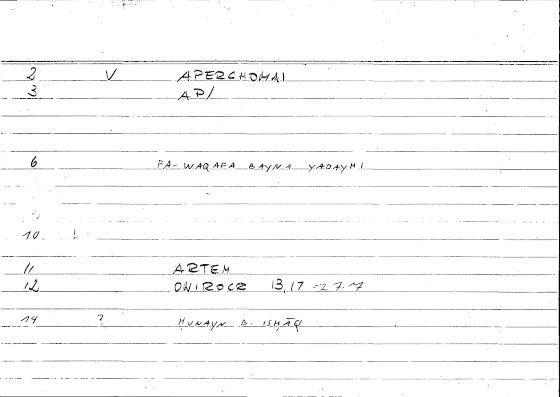 2 V APERCHOMAI
3 AP/
6 FA-WAQAFA BAYNA YADAYHI
10. !
11 ARTEM
12 ONIROCR 13,17 = 27.17
14 ? ḤUNAYN B. ISḤĀQ